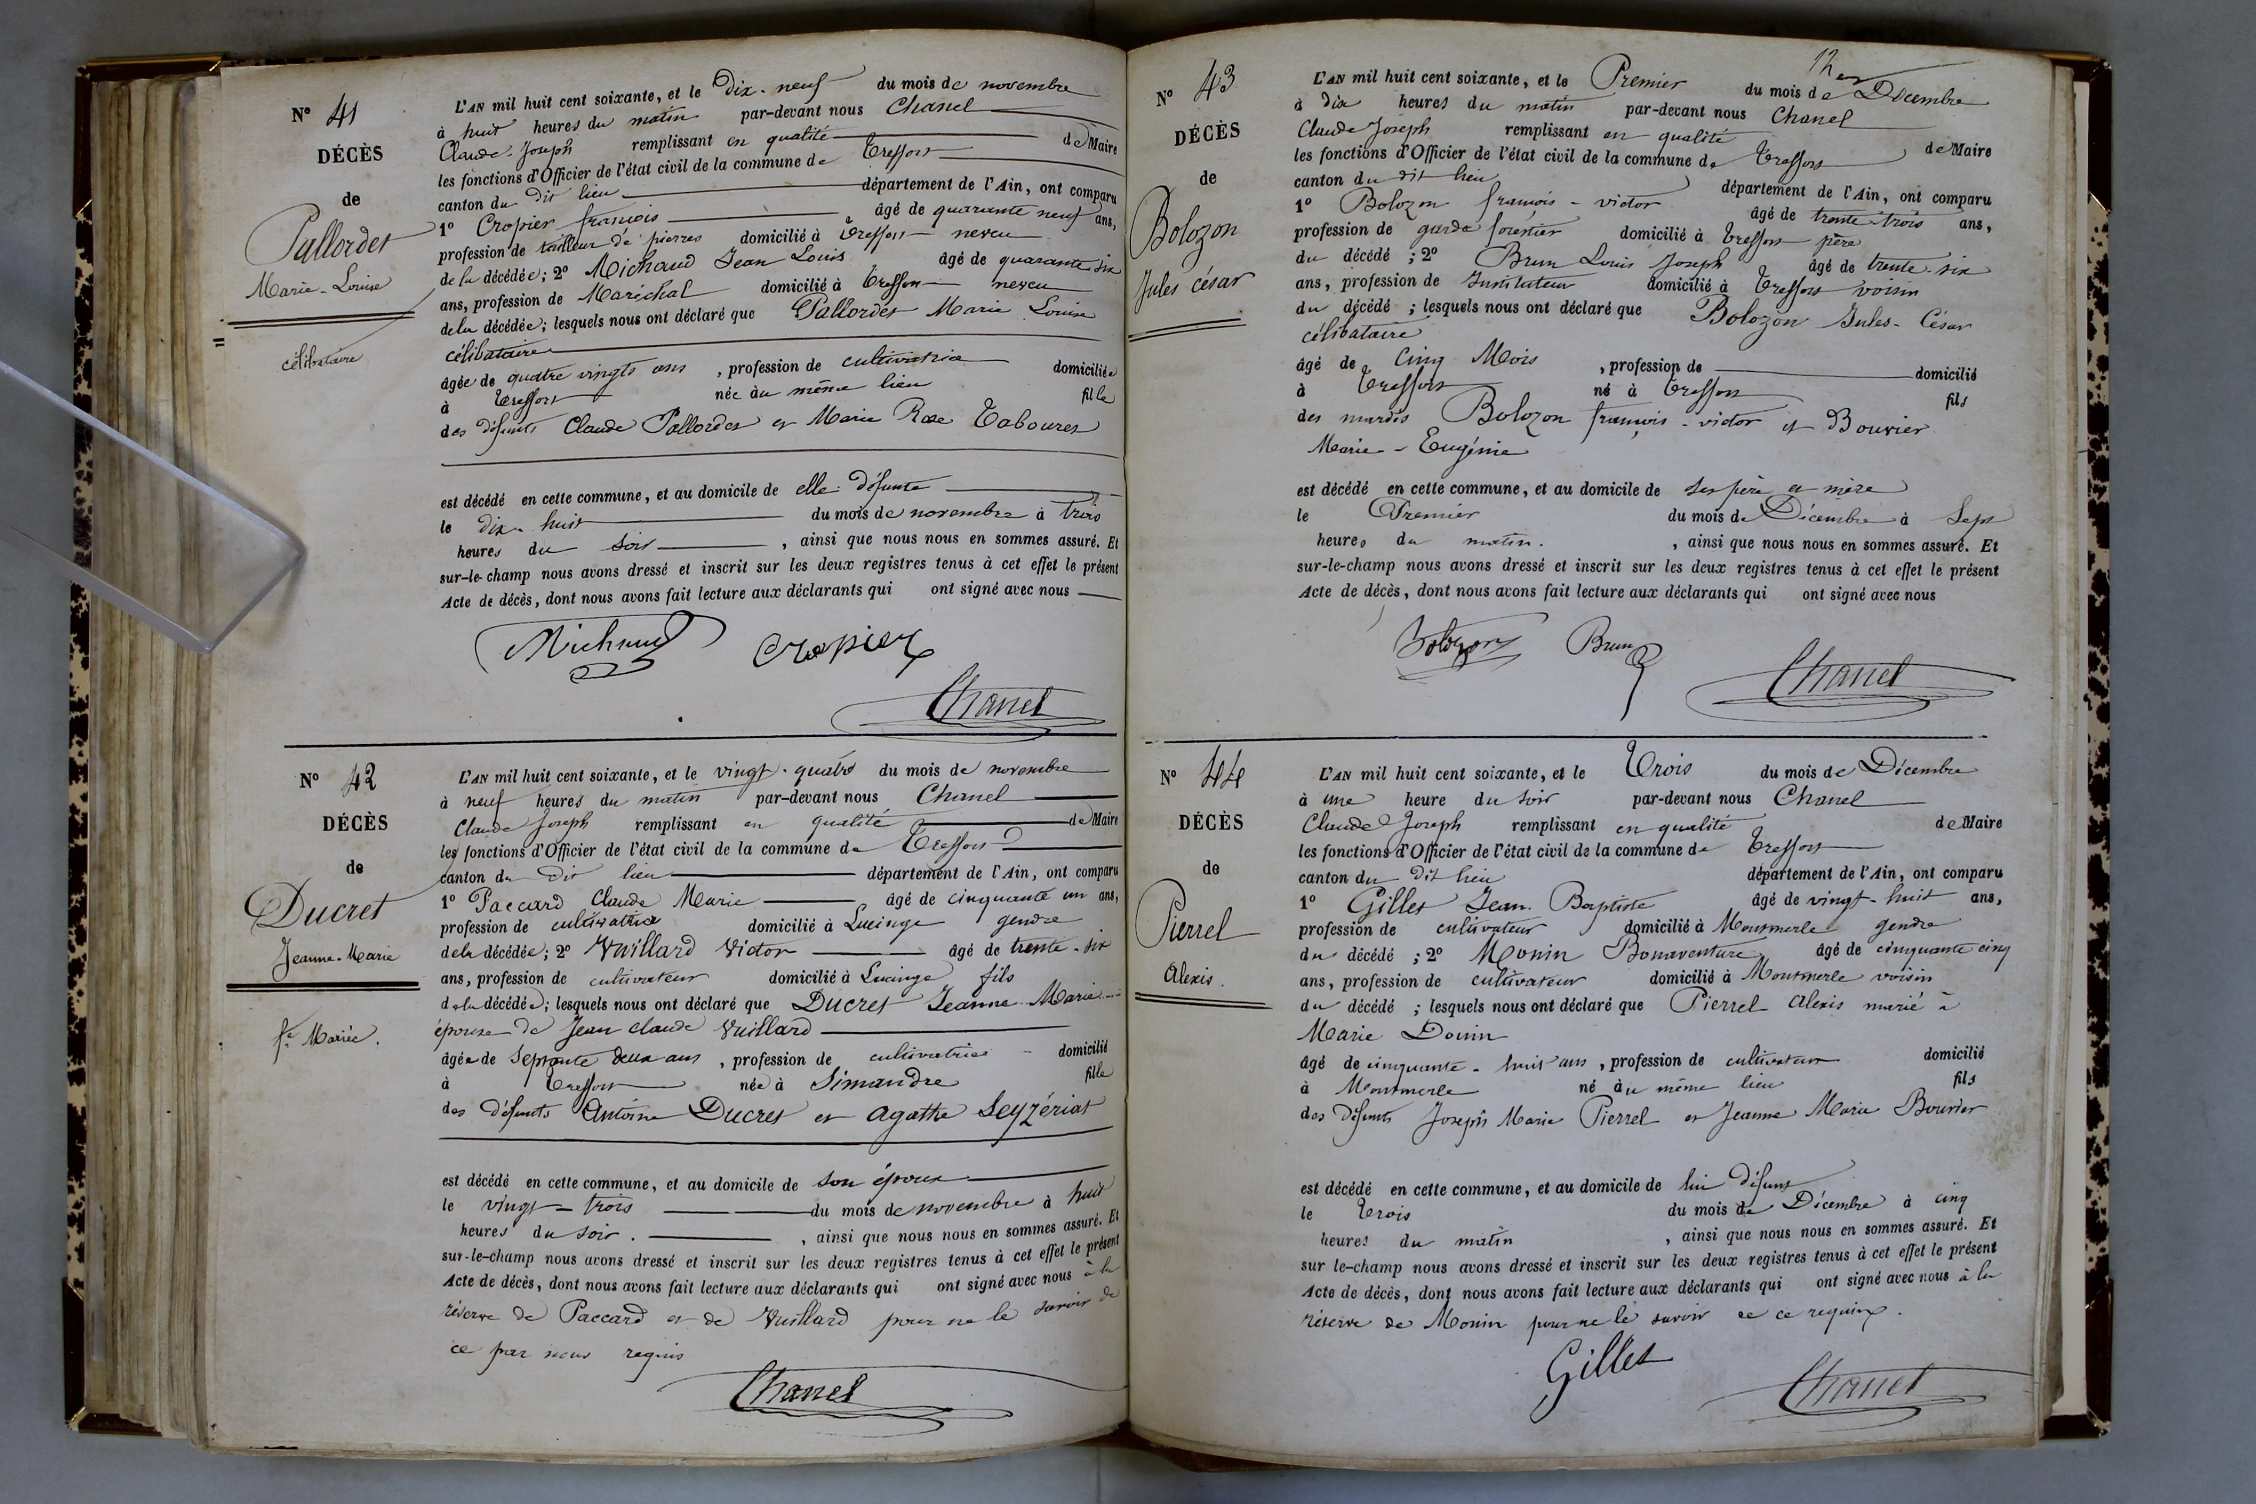 N° 41
DÉCÈS
de
Pallordet
Marie-Louise
célibataire
L'AN mil huit cent soixante, et le Dix-neuf du mois de novembre
à huit heures du matin par-devant nous Chanel
Claude-Joseph remplissant en qualité de Maire
les fonctions d'Officier de l'état civil de la commune de Treffort
canton du dit lieu département de l'Ain, ont comparu
1° Cropier françois âgé de quarante neuf ans,
profession de tailleur de pierres domicilié à Treffort neveu
de la décédée; 2° Michaud Jean Louis âgé de quarante six
ans, profession de Maréchal domicilié à Treffort neveu
de la décédée; lesquels nous ont déclaré que Pallordet Marie Louise
célibataire
âgée de quatre vingts ans, profession de cultivatrice domiciliée
à Treffort née au même lieu fille
des défunts Claude Pallordet et Marie Rose Tabouret
est décédé en cette commune, et au domicile de elle défunte
le dix-huit du mois de novembre à trois
heures du soir, ainsi que nous nous en sommes assuré. Et
sur-le-champ nous avons dressé et inscrit sur les deux registres tenus à cet effet le présent
Acte de décès, dont nous avons fait lecture aux déclarants qui ont signé avec nous
Michaud Cropier
Chanel
N° 42
DÉCÈS
de
Ducret
Jeanne-Marie
fe Mariée.
L'AN mil huit cent soixante, et le vingt-quatre du mois de novembre
à neuf heures du matin par-devant nous Chanel
Claude Joseph remplissant en qualité de Maire
les fonctions d'Officier de l'état civil de la commune de Treffort
canton du dit lieu département de l'Ain, ont comparu
1° Paccard Claude Marie âgé de cinquante un ans,
profession de cultivatrice domicilié à Lucinge gendre
de la décédée; 2° Vuillard Victor âgé de trente-six
ans, profession de cultivateur domicilié à Lucinge fils
de la décédée; lesquels nous ont déclaré que Ducret Jeanne Marie
épouse de Jean Claude Vuillard
âgée de septante deux ans, profession de cultivatrice domicilié
à Treffort née à Simandre fille
des défunts Antoine Ducret et Agathe Seyzériat
est décédé en cette commune, et au domicile de son époux
le vingt-trois du mois de novembre à huit
heures du soir., ainsi que nous nous en sommes assuré. Et
sur-le-champ nous avons dressé et inscrit sur les deux registres tenus à cet effet le présent
Acte de décès, dont nous avons fait lecture aux déclarants qui ont signé avec nous à la
réserve de Paccard et de Vuillard pour ne le savoir de
ce par nous requis
Chanel
N° 43
DÉCÈS
de
Bolozon
Jules César
L'AN mil huit cent soixante, et le Premier du mois de Décembre
à dix heures du matin par-devant nous Chanel
Claude Joseph remplissant en qualité de Maire
les fonctions d'Officier de l'état civil de la commune de Treffort
canton du dit lieu département de l'Ain, ont comparu
1° Bolozon françois-victor âgé de trente-trois ans,
profession de garde forestier domicilié à Treffort père
du décédé; 2° Brun Louis Joseph âgé de trente-six
ans, profession de Instituteur domicilié à Treffort voisin
du décédé; lesquels nous ont déclaré que Bolozon Jules-César
célibataire
âgé de Cinq Mois, profession de domicilié
à Treffort né à Treffort fils
des mariés Bolozon françois-victor et Bouvier
Marie-Eugénie
est décédé en cette commune, et au domicile de ses père et mère
le Premier du mois de Décembre à Sept
heures du matin., ainsi que nous nous en sommes assuré. Et
sur-le-champ nous avons dressé et inscrit sur les deux registres tenus à cet effet le présent
Acte de décès, dont nous avons fait lecture aux déclarants qui ont signé avec nous
Bolozon Brun
Chanel
N° 44
DÉCÈS
de
Pierrel
Alexis.
L'AN mil huit cent soixante, et le Trois du mois de Décembre
à une heure du soir par-devant nous Chanel
Claude Joseph remplissant en qualité de Maire
les fonctions d'Officier de l'état civil de la commune de Treffort
canton du dit lieu département de l'Ain, ont comparu
1° Gilles Jean Baptiste âgé de vingt-huit ans,
profession de cultivateur domicilié à Montmerle gendre
du décédé; 2° Monin Bonaventure âgé de cinquante cinq
ans, profession de cultivateur domicilié à Montmerle voisin
du décédé; lesquels nous ont déclaré que Pierrel Alexis marié à
Marie Donin
âgé de cinquante-huit ans, profession de cultivateur domicilié
à Montmerle né au même lieu fils
des défunts Joseph Marie Pierrel et Jeanne Marie Bouvier
est décédé en cette commune, et au domicile de lui défunt
le Trois du mois de Décembre à cinq
heures du matin, ainsi que nous nous en sommes assuré. Et
sur le-champ nous avons dressé et inscrit sur les deux registres tenus à cet effet le présent
Acte de décès, dont nous avons fait lecture aux déclarants qui ont signé avec nous à la
réserve de Monin pour ne le savoir de ce requis.
Gilles
Chanel